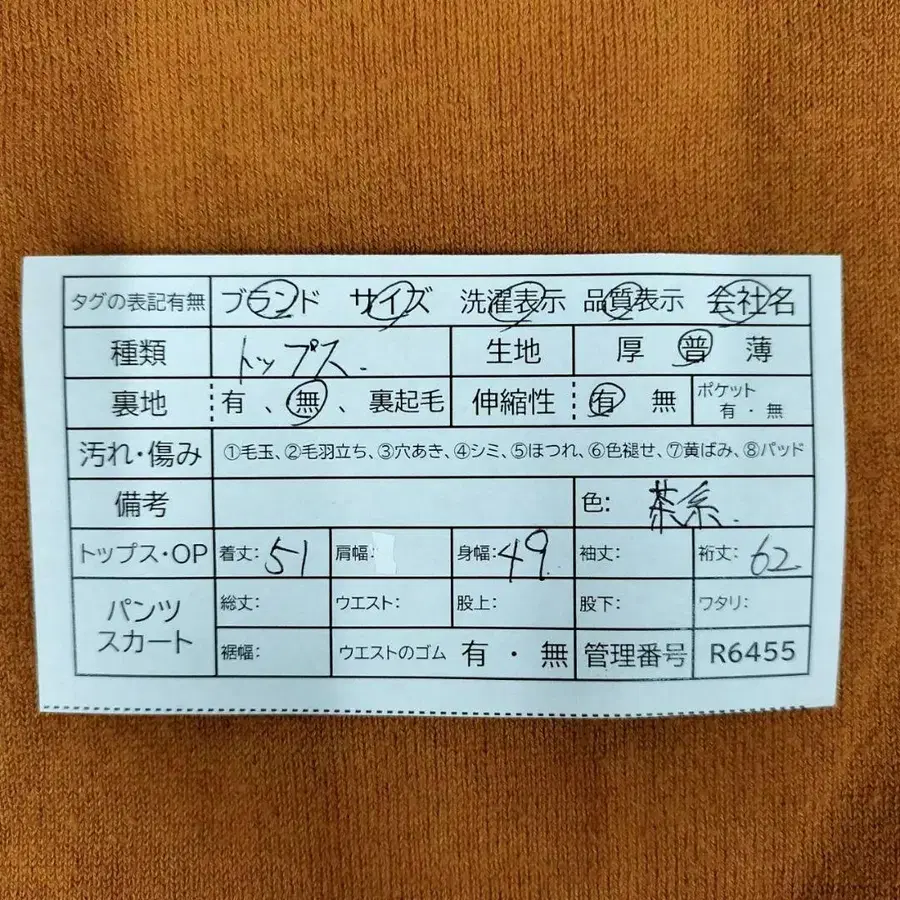 タグの表記有無 ブランド サイズ 洗濯表示 品質表示 会社名
種類 トップス. 生地 厚 普 薄
裏地 有、無、裏起毛 伸縮性 有 無 ポケット 有・無
汚れ・傷み ①毛玉、②毛羽立ち、③穴あき、④シミ、⑤ほつれ、⑥色褪せ、⑦黄ばみ、⑧パッド
備考 色: 茶系.
トップス・OP 着丈: 51 肩幅: 身幅: 49. 袖丈: 裄丈: 62
パンツ スカート 総丈: ウエスト: 股上: 股下: ワタリ:
裾幅: ウエストのゴム 有・無 管理番号 R6455